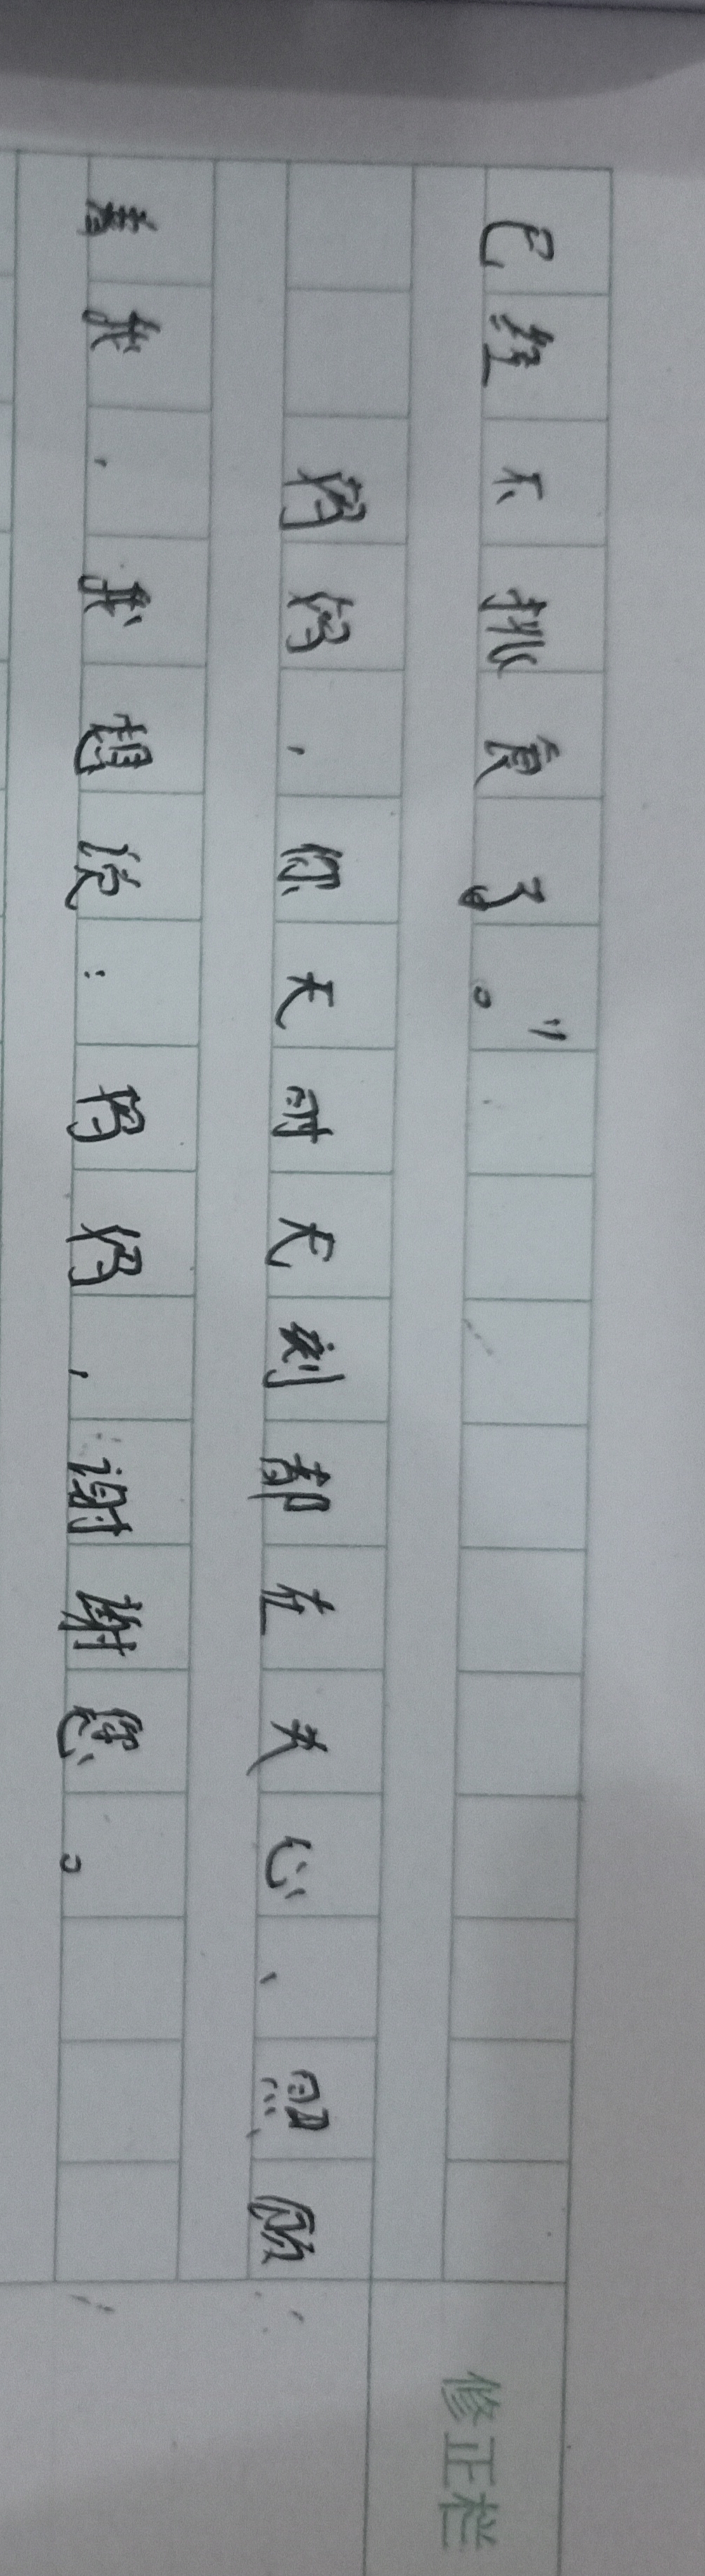 已经不挑食了。”
妈妈,你无时无刻都在关心、照顾
着我,我想说:妈妈,谢谢您。
修正栏